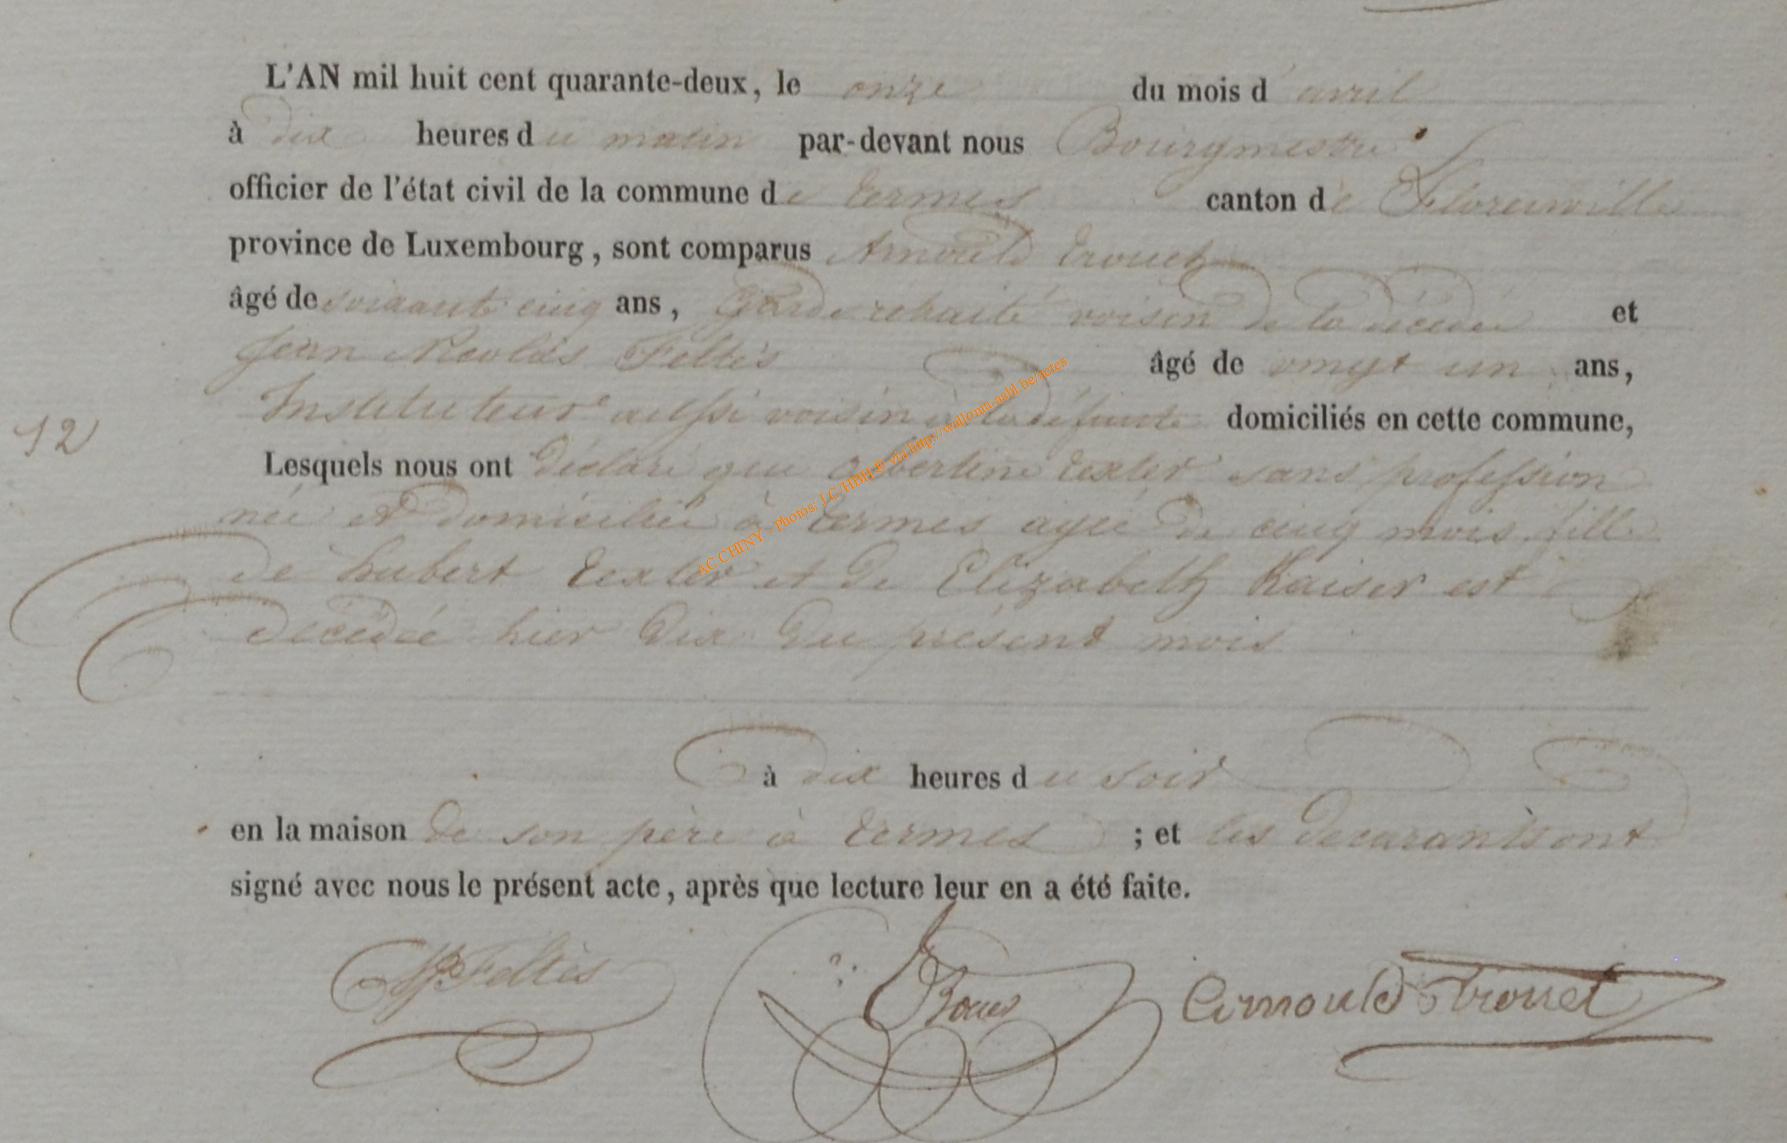 L'AN mil huit cent quarante-deux, le onze du mois d'avril
à dix heures du matin par-devant nous Bourgmestre
officier de l'état civil de la commune de termes canton de Florenville
province de Luxembourg, sont comparus Arnould trouet
âgé de soixante cinq ans, Garde retraité voisin de la décédée et
Jean Nicolas Feltès âgé de vingt un ans,
Instituteur aussi voisin à la défunte domiciliés en cette commune,
12
Lesquels nous ont déclaré que texter sans profession
née et domiciliée à termes agée de cinq mois fille
de hubert texter et de Elizabeth Kaiser est
décédée hier dix du présent mois
à dix heures du soir
en la maison de son père à termes ; et les décarants ont
signé avec nous le présent acte, après que lecture leur en a été faite.
Feltès Arnould trouet
AC CHINY - Photos: J.C. HBH @ via http://wallonia-asbl.be/actes